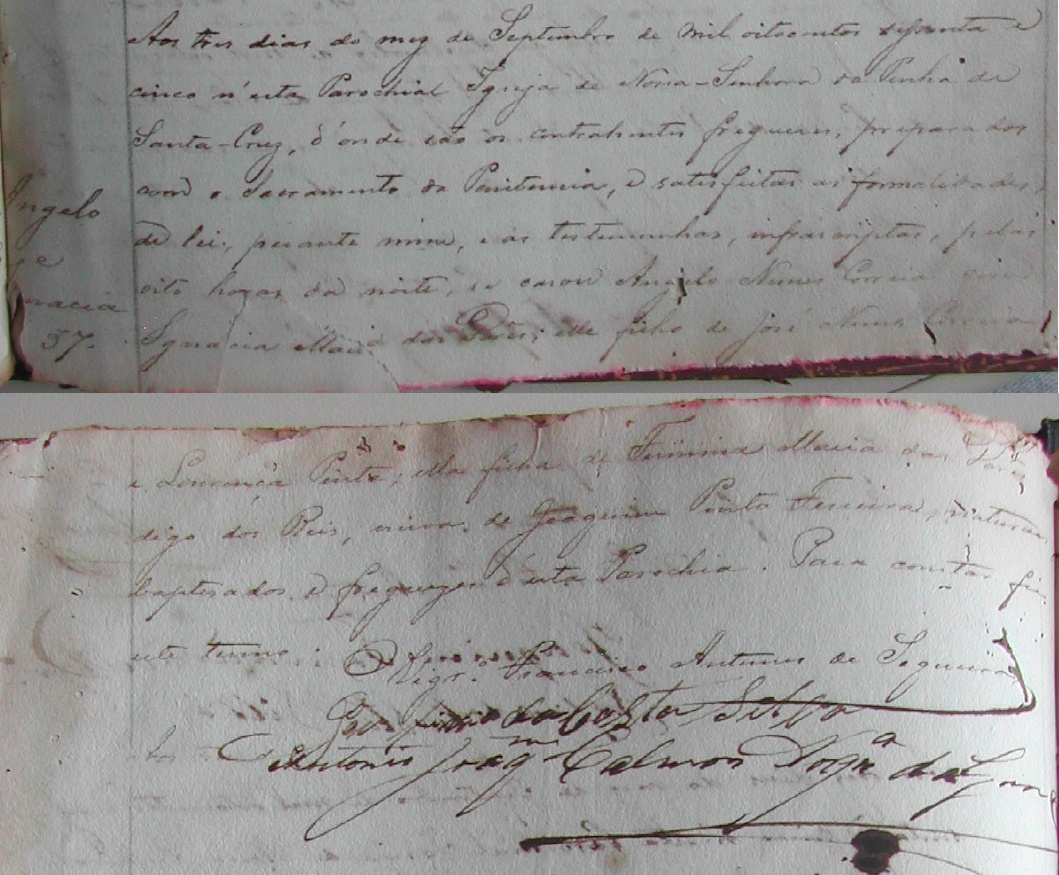 Aos tres dias do mez de Septembro de mil oitocentos sessenta e
cinco n'esta Parochial Igreja de Nossa-Senhora da Penha de
Santa-Cruz, d'onde são os contrahentes freguezes, preparados
com o Sacramento da Penitencia, e satisfeitas as formalidades
de lei, perante mim, e as testemunhas, infrascriptas, pelas
oito horas da noite, se casou Angelo Nunes Correia com
Ignacia Maria dos Reis; elle filho de José Nunes Correia
Angelo
e
nacia
37.
e Lourença Pinto, ella filha de Firmina Maria dos
digo dos Reis, viuva de Joaquim Pinto Ferreira, naturaes
baptisados e freguezes d'esta Parochia. Para constar fiz
este termo.
O Regr. Francisco Antunes de Sequeira
da Costa Silva
Antonio Joaqm Calmon Nogra da Gama